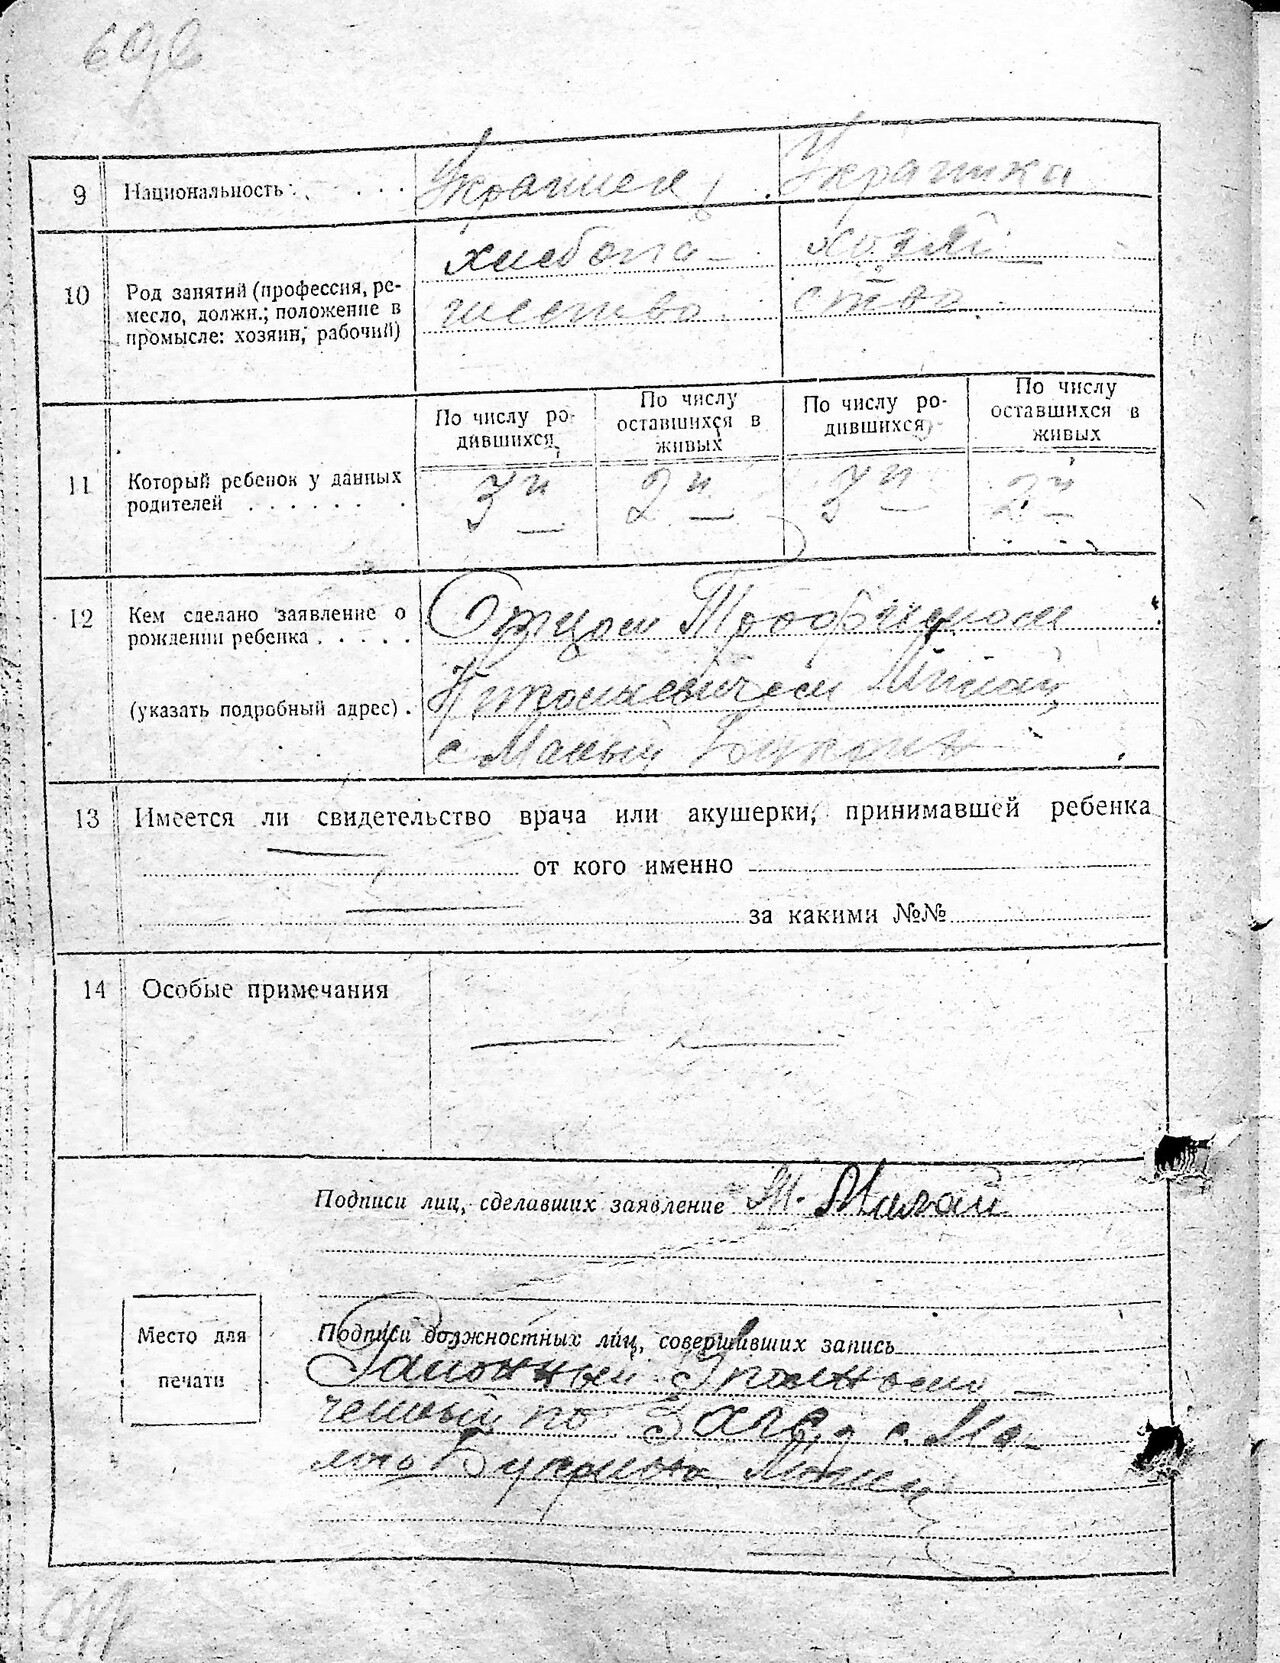 9 Национальность Украинец Украинка
10 Род занятий (профессия, ре-
месло, должн.; положение в
промысле: хозяин, рабочий)
хлебопа- хозяй-
шество ство
11 Который ребенок у данных
родителей
По числу ро-
дившихся
По числу
оставшихся в
живых
По числу ро-
дившихся
По числу
оставшихся в
живых
3й 2й 3й 2й
12 Кем сделано заявление о
рождении ребенка
(указать подробный адрес).
Отцом Трофимом
с Малый Букрин
13 Имеется ли свидетельство врача или акушерки, принимавшей ребенка
от кого именно
за какими №№
14 Особые примечания
Подписи лиц, сделавших заявление
Место для
печати
Подписи должностных лиц, совершивших запись
Районный Уполномо-
ченный по Загс, с. Ма-
лого Букрина